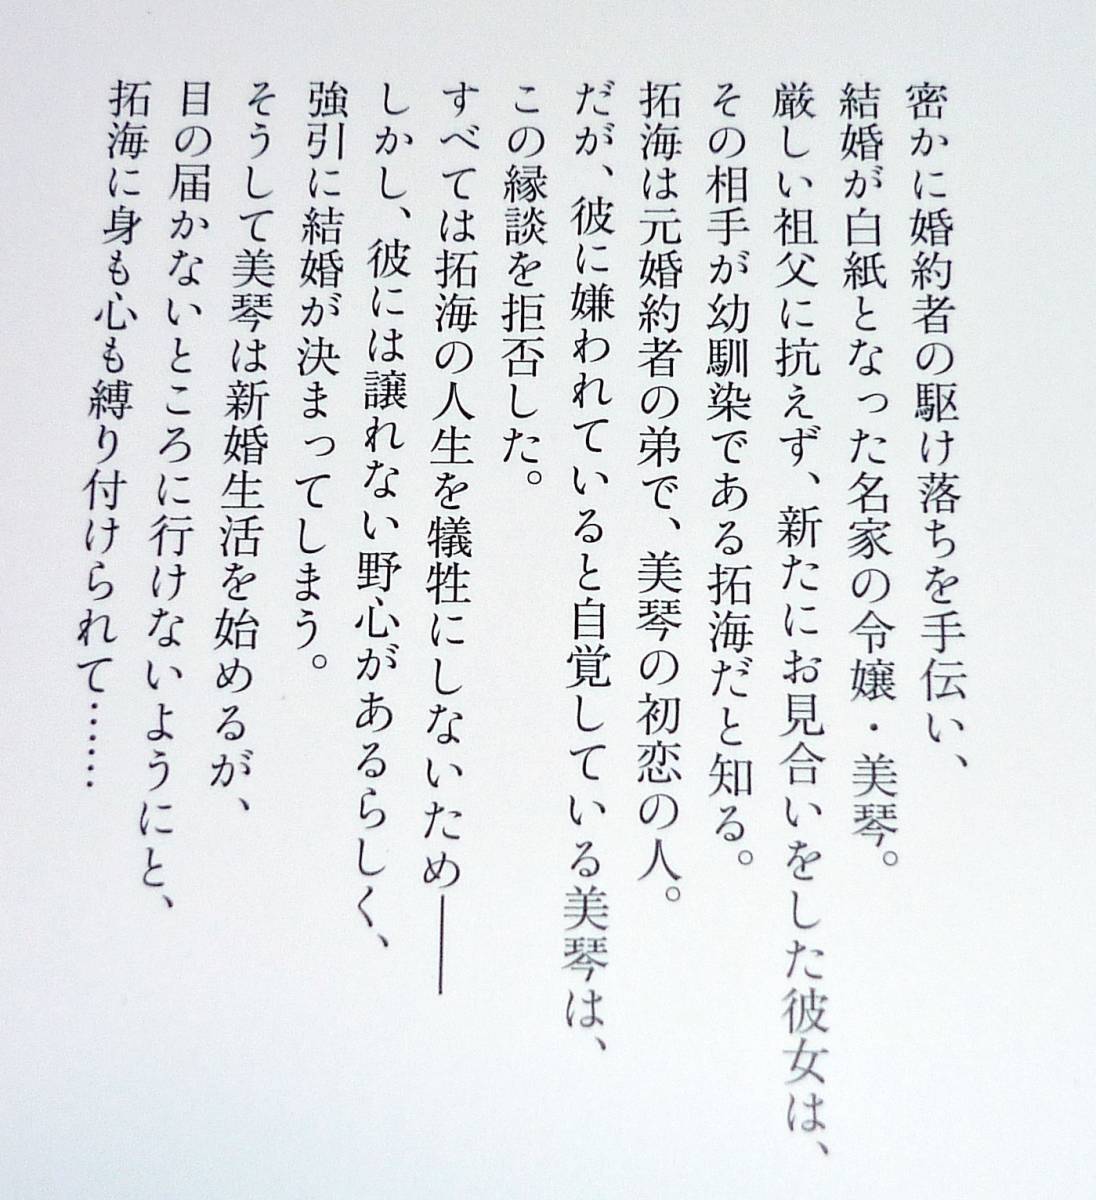 密かに婚約者の駆け落ちを手伝い、
結婚が白紙となった名家の令嬢・美琴。
厳しい祖父に抗えず、新たにお見合いをした彼女は、
その相手が幼馴染である拓海だと知る。
拓海は元婚約者の弟で、美琴の初恋の人。
だが、彼に嫌われていると自覚している美琴は、
この縁談を拒否した。
すべては拓海の人生を犠牲にしないため――
しかし、彼には譲れない野心があるらしく、
強引に結婚が決まってしまう。
そうして美琴は新婚生活を始めるが、
目の届かないところに行けないようにと、
拓海に身も心も縛り付けられて……